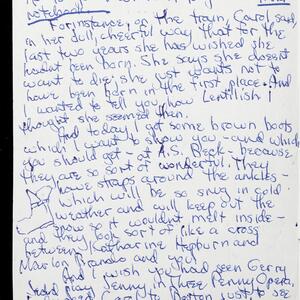 notebook!
For instance, on the train, Carol said
in her dull, cheerful way that for the
last two years she has wished she
hadn't been born. She says she doesn't
want to die, she just wants not to
have been born in the first place. And
I wanted to tell you how
Lentilish I
thought she seemed then.
And today I got some brown boots
which I want to show you - and which
you should get - at A.S. Beck - because
they are so sort of wonderful. They
have straps around the ankles -
which will be so snug in cold
weather and will keep out the
snow so it wouldn't melt inside -
and they look sort of like a cross
between Katharine Hepburn and
Marlon Brando and you!
And I wish you had seen Gerry
play Jenny in three Penny Opera,
Carol to Boston just to see